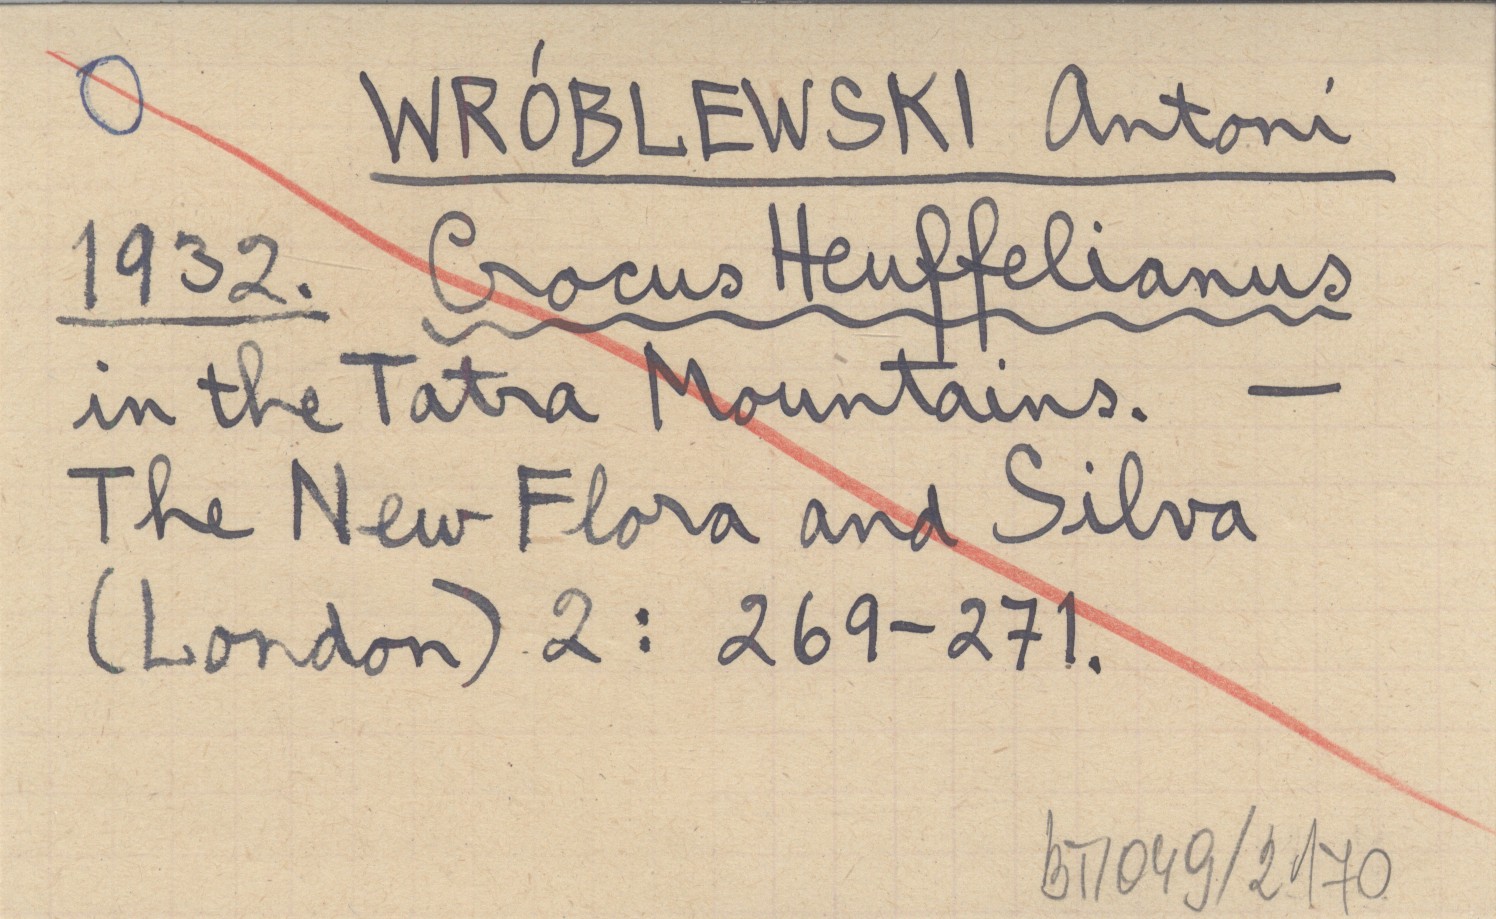 WRÓBLEWSKI Antoni
1932. Crocus Heuffelianus
in the Tatra Mountains. —
The New Flora and Silva
(London) 2: 269-271.
БП049/2170